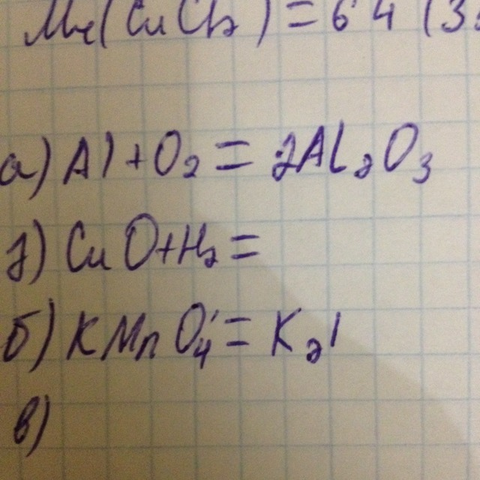 Mr(CuCl2) = 64 (35
а) Al + O2 = 2Al2O3
г) CuO + H2 =
б) KMnO4 = K2
в)